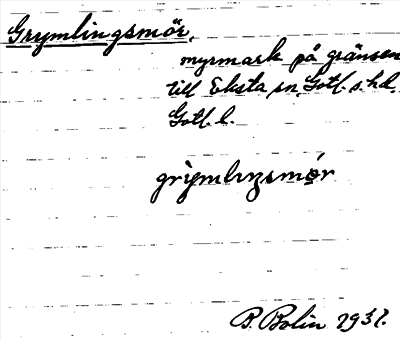 Grymlingsmör,
myrmark på gränsen
till Eksta sn, Gotl. s. hd.
Gotl. l.
B. Bolin 1937.